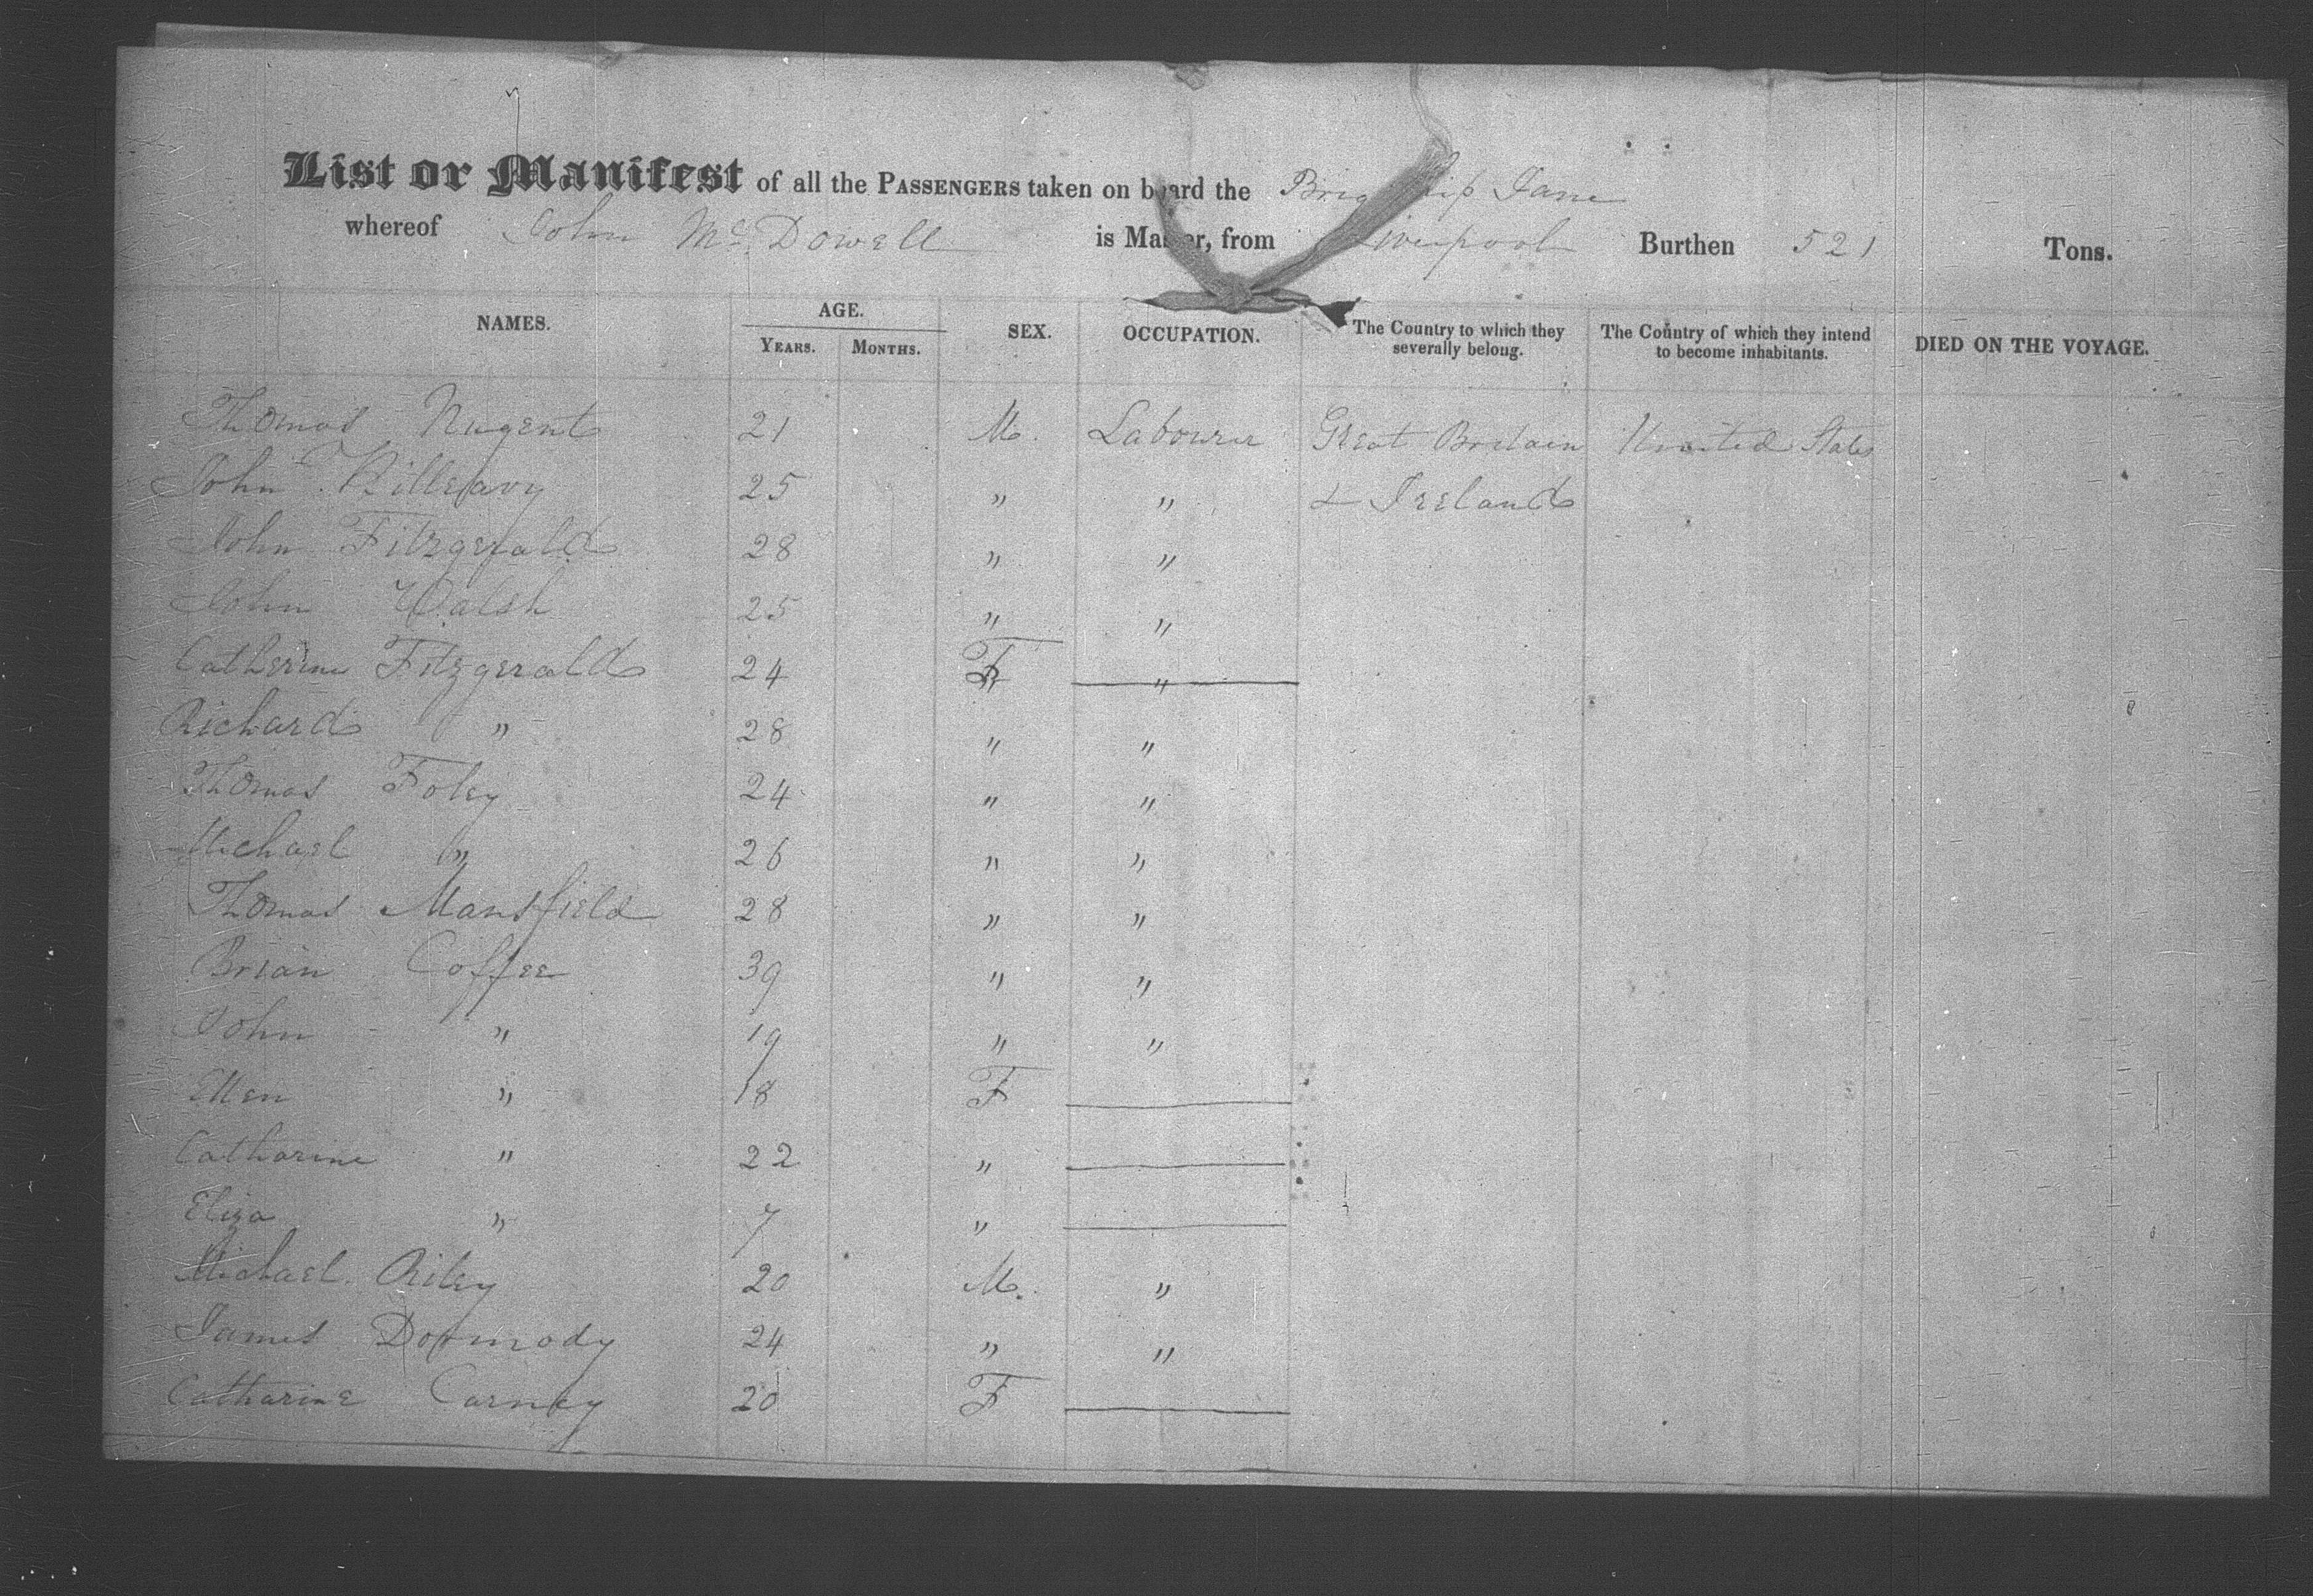 List or Manifest of all the PASSENGERS taken on board the Brig Ship Jane
whereof John McDowell is Master, from Liverpool Burthen 521 Tons.
NAMES. AGE. YEARS. MONTHS. SEX. OCCUPATION. The Country to which they severally belong. The Country of which they intend to become inhabitants. DIED ON THE VOYAGE.
Thomas Nugent 21 M. Labourer Great Britain United States
John Killeavy 25 " " & Ireland
John Fitzgerald 28 " "
John Walsh 25 " "
Catherine Fitzgerald 24 F "
Richard " 28 " "
Thomas Foley 24 " "
Michael " 26 " "
Thomas Mansfield 28 " "
Brian Coffee 39 " "
John " 19 " "
Ellen " 18 F
Catharine " 22 "
Eliza " 7 "
Michael Riley 20 M. "
James Dormody 24 " "
Catharine Carney 20 F